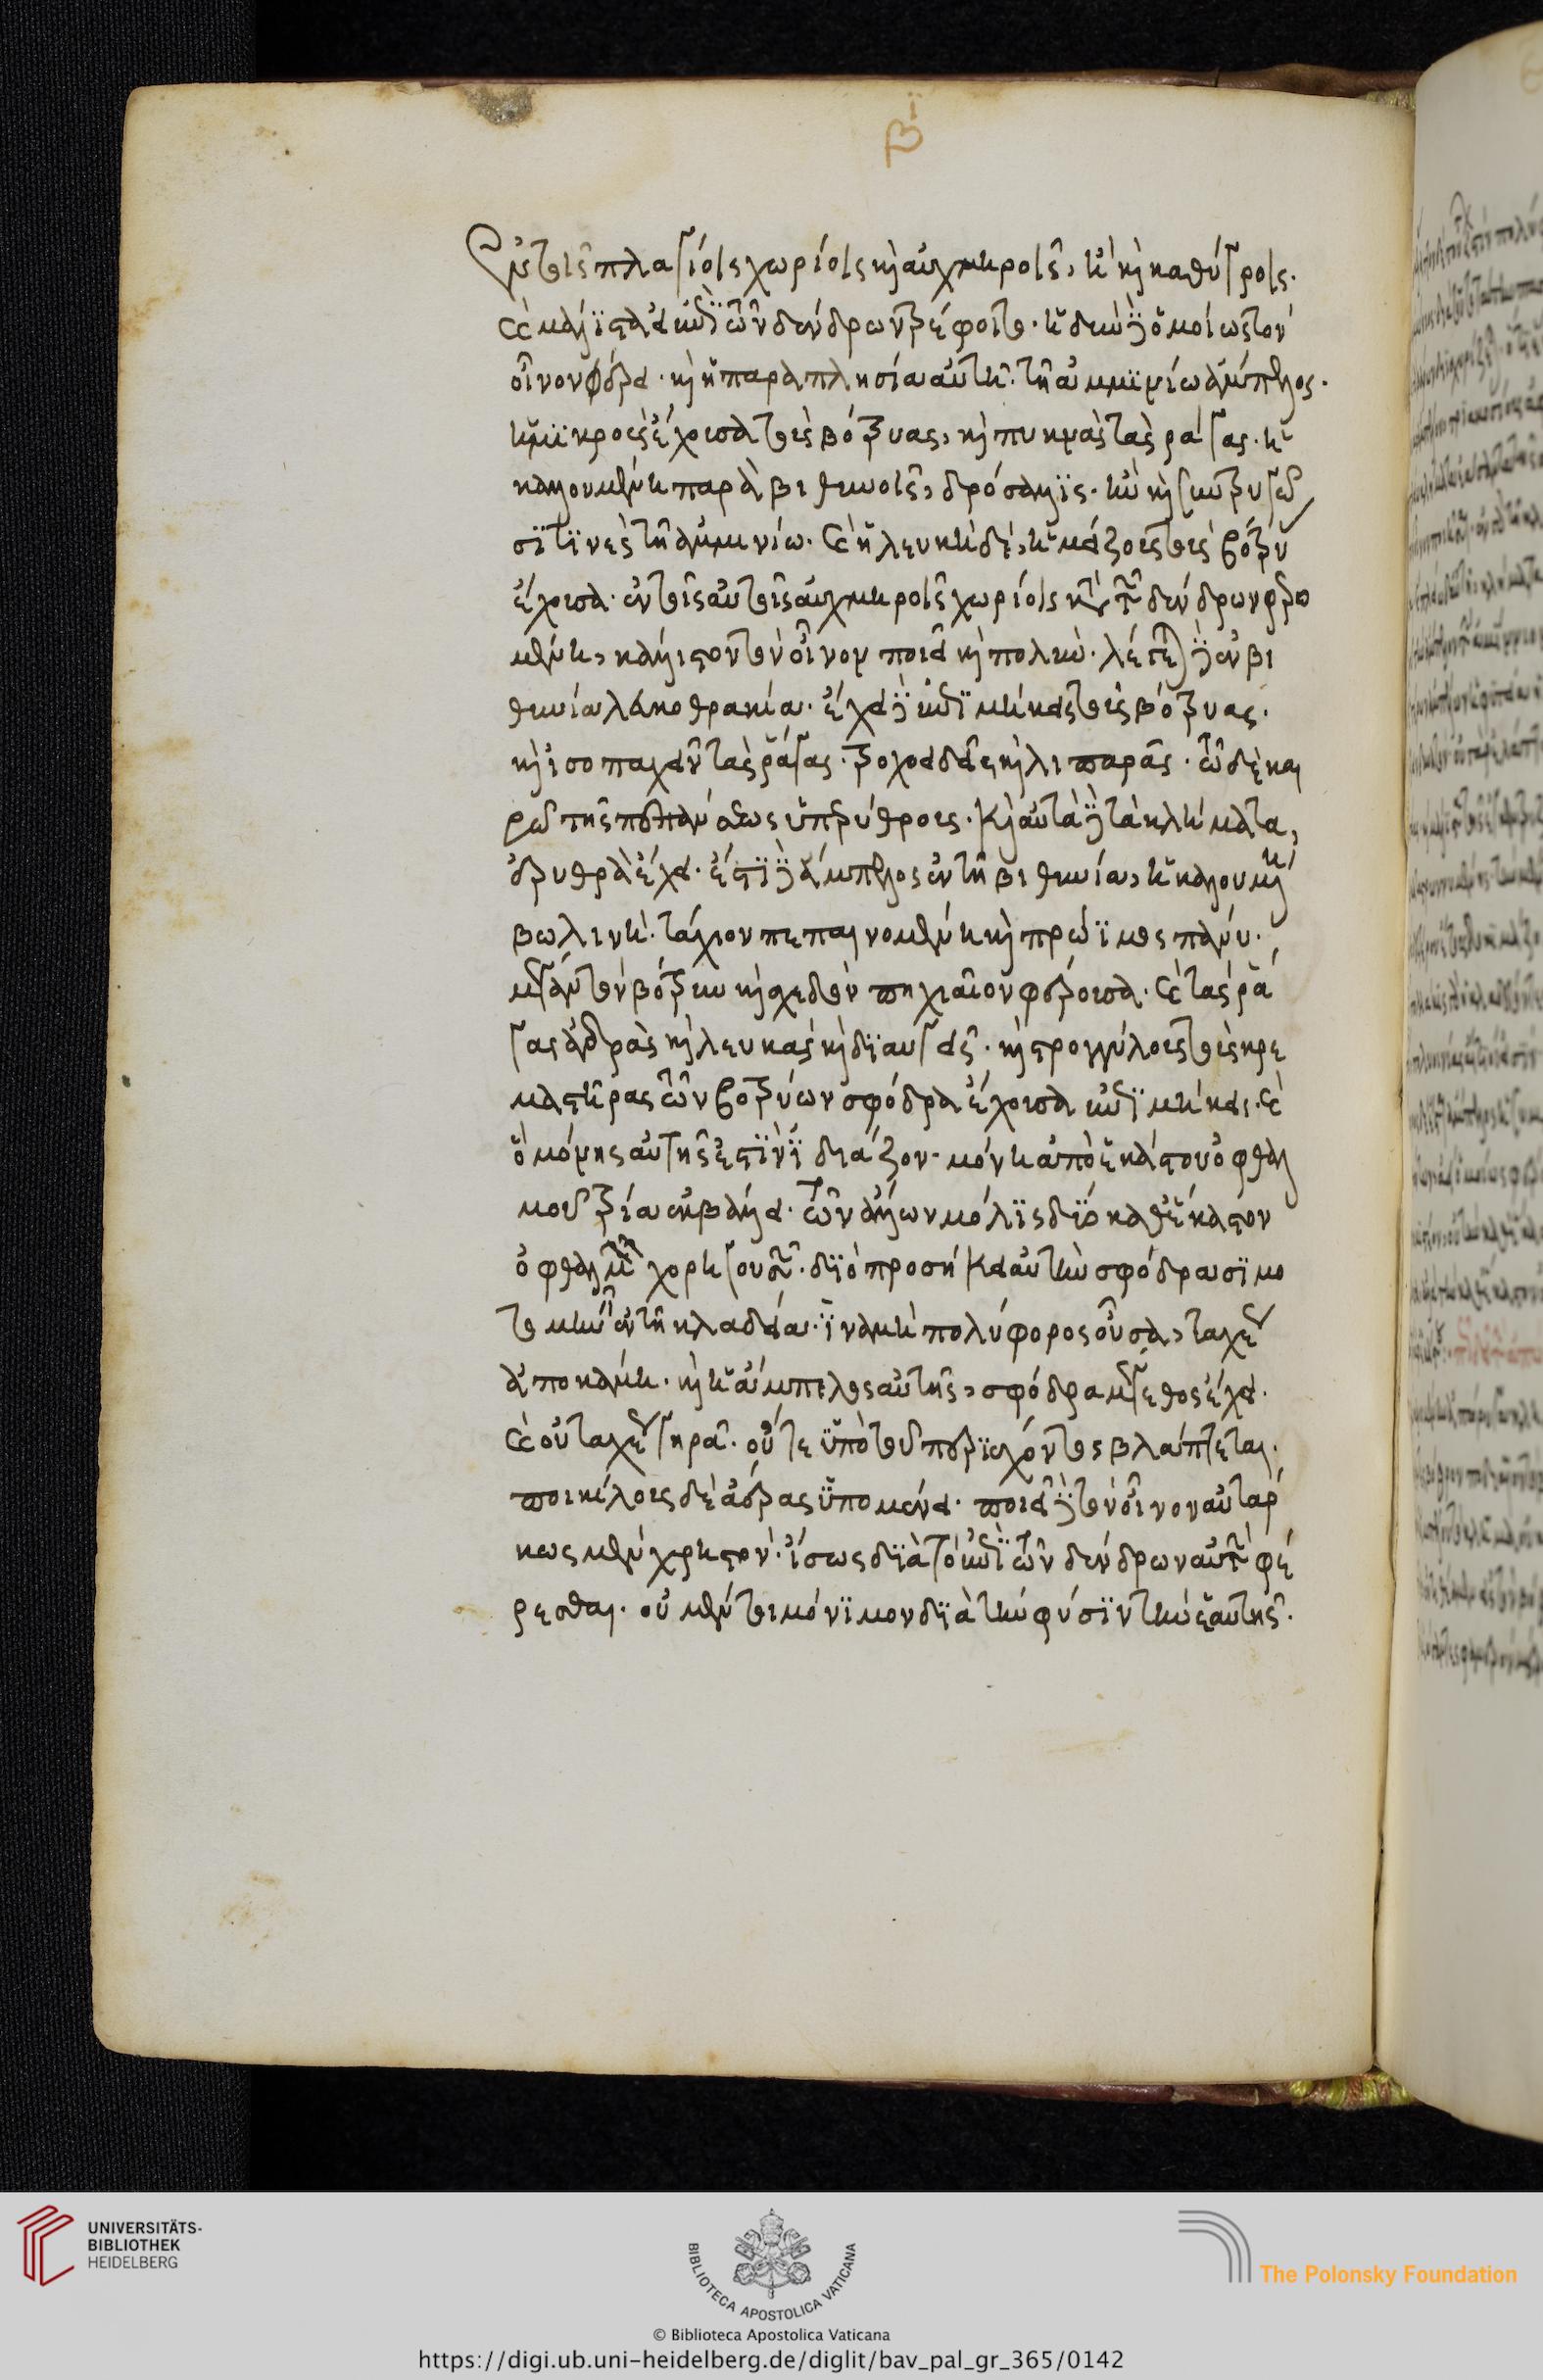 ἐν τοῖς πλαγίοις χωρίοις καὶ αὐχμηροῖς, ἢ καὶ καθύγροις.
καὶ μάλιστα εἰ ἐπὶ τῶν δένδρων τρέφοιτο. ἡδὺν δὲ ὁμοίως τὸν
οἶνον φέρει. καὶ ἡ παραπλησία αὐτῇ τῇ ἀμμινίω ἄμπελος.
ἡ μικροὺς ἔχουσα τοὺς βότρυας, καὶ πυκνὰς τὰς ῥάγας. ἡ
καλουμένη παρὰ βιθυνοῖς, δρόσαλλις. ἣν καὶ συντρυγοῦ
σί τινες τῇ ἀμηνίω. καὶ ἡ λευκὴ δέ, ἡ μείζους τοὺς βότρυ
ἔχουσα ἐν τοῖς αὐτοῖς αὐχμηροῖς χωρίοις κατὰ τῶν δένδρων τρεφο
μένη, κάλλιστον τὸν οἶνον ποιεῖ καὶ πολύν. λέγεται δὲ ἐν βι
θυνία λευκοθρακία. ἔχει δὲ ἐπιμήκεις τοὺς βότρυας.
καὶ ἰσοπαχεῖς τὰς ῥάγας. τροχοειδεῖς καὶ λιπαράς. τῷ δὲ και
ρῷ τῆς πεπάνσεως ὑπερύθρους. καὶ αὐτὰ δὲ τὰ κλήματα,
ἐρυθρὰ ἔχει. ἔστι δὲ ἄμπελος ἐν τῇ βιθυνία, ἡ καλουμένη
βωλινή. τάχιον πεπαινομένη καὶ πρώϊμος πάνυ.
μέγαν τὸν βότρυν καὶ σχεδὸν πηχιαῖον φέρουσα. καὶ τὰς ῥά
γας ἁδρὰς καὶ λευκὰς καὶ διαυγεῖς. καὶ στρογγύλους τοὺς κρε
μαστῆρας τῶν βοτρύων σφόδρα ἔχουσα ἐπιμήκεις. καὶ
ὁ μόνης αὐτῆς ἐστὶν ἰδιάζον. μόνη ἀπὸ ἑκάστου ὀφθαλ
μοῦ τρία ἐκβάλλει. τῶν ἄλλων μόλις δύο καθ' ἕκαστον
ὀφθαλμὸν χορηγουσῶν. διὸ προσήκει αὐτὴν σφόδρα σιμο
τομεῖν ἐν τῇ κλαδεία. ἵνα μὴ πολύφορος οὖσα, ταχέως
ἀποκάμη. καὶ ἡ ἄμπελος αὐτῆς, σφόδρα μέγεθος ἔχει.
καὶ οὐ ταχέως γηρᾶ. οὔτε ὑπὸ τοῦ περιέχοντος βλάπτεται.
ποικίλους δὲ ἀέρας ὑπομένει. ποιεῖ δὲ τὸν οἶνον αὐτάρ
κως μὲν χρηστόν. ἴσως διὰ τὸ ἐπὶ τῶν δένδρων αὐτὴν φέ
ρεσθαι. οὐ μέν τοι μόνιμον διὰ τὴν φύσιν τὴν ἑαυτῆς.
UNIVERSITÄTS-
BIBLIOTHEK
HEIDELBERG
BIBLIOTECA APOSTOLICA VATICANA
The Polonsky Foundation
© Biblioteca Apostolica Vaticana
https://digi.ub.uni-heidelberg.de/diglit/bav_pal_gr_365/0142